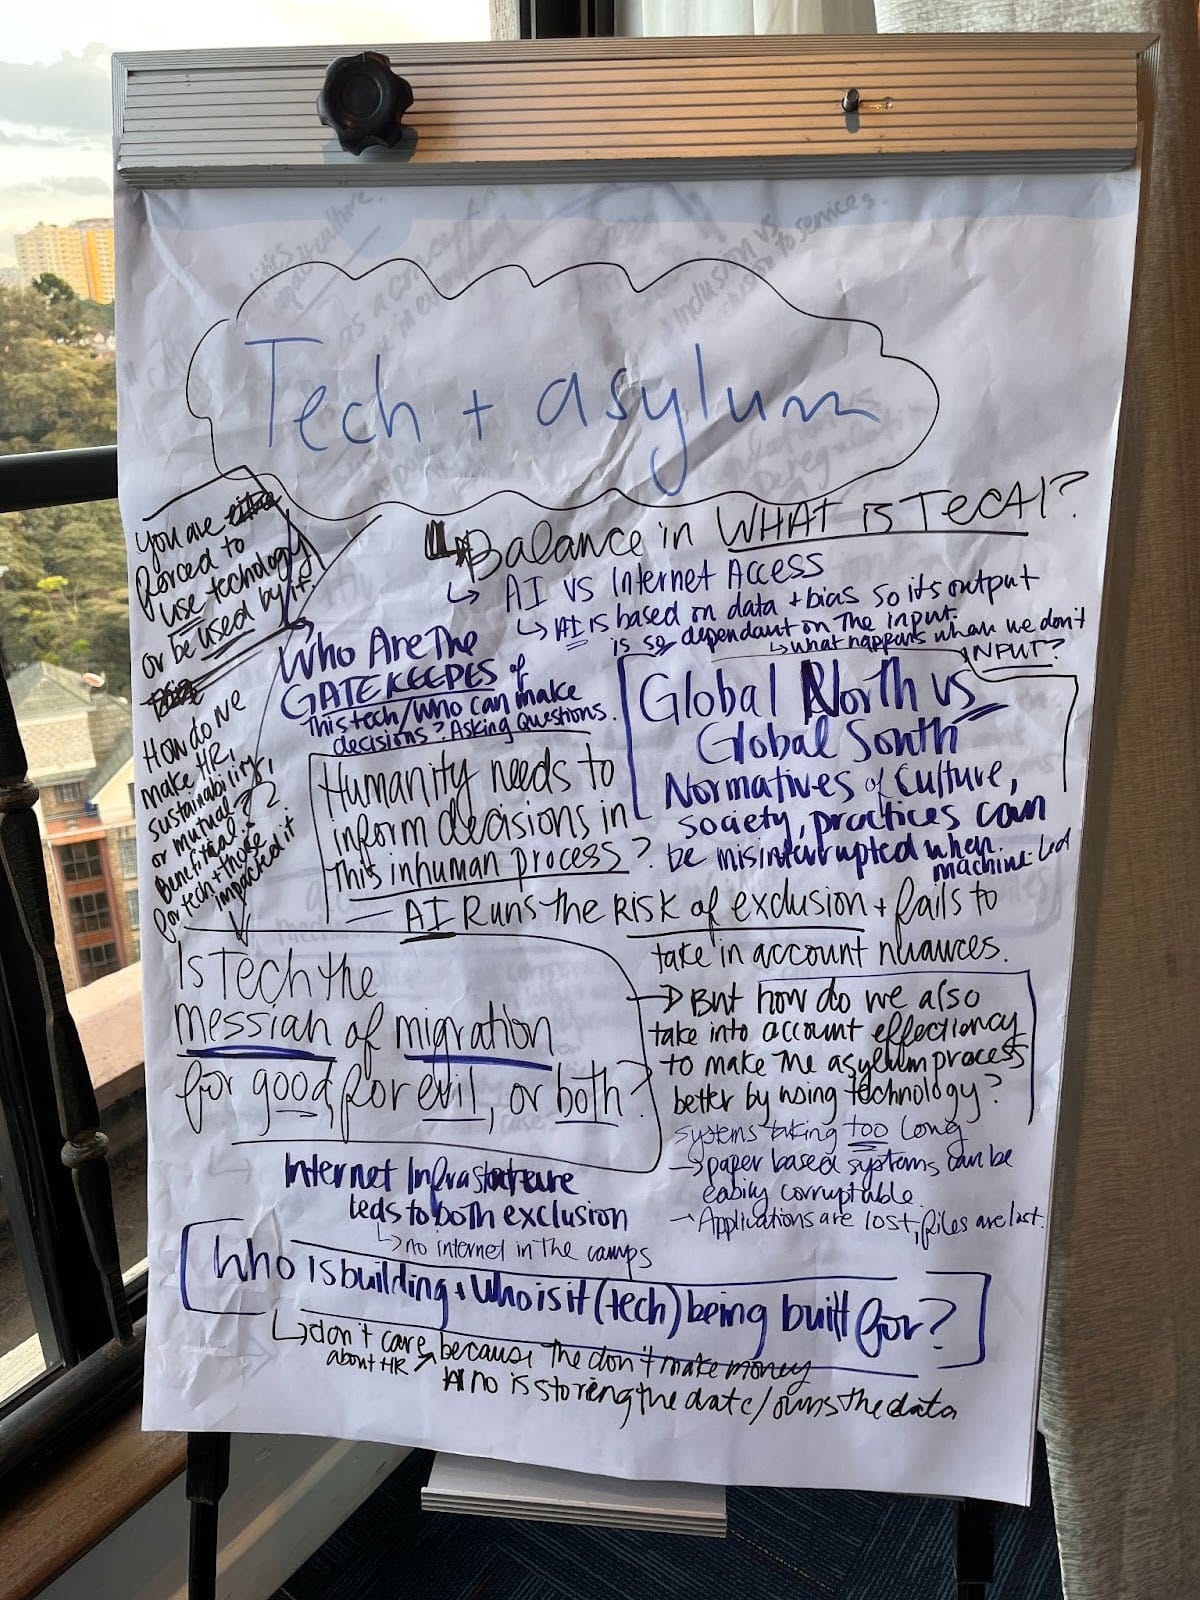 Tech + asylum
↳ Balance in WHAT is TECH?
↳ AI vs Internet Access
↳ AI is based on data + bias so its output
is so dependant on the input.
↳ what happens when we don't
INPUT?
you are
forced to
use technology
or be used by it.
Who Are The
GATEKEEPES of
This tech/who can make
decisions? Asking Questions.
Global North vs
Global South
Normatives of Culture,
society, practices can
be misinterrupted when
machine-led
How do we
make HR,
sustainability,
or mutual
Benefitial
for tech + those
impacted it
Humanity needs to
inform decisions in
This inhuman process?
— AI Runs the risk of exclusion + fails to
take in account nuances.
Is Tech the
messiah of migration
for good, for evil, or both?
→ But how do we also
take into account effectiency
to make the asylum process
better by using technology?
systems taking too long
→ paper based systems can be
easily corruptable
→ Applications are lost, files are lost.
Internet Infrastructure
leds to both exclusion
↳ no internet in the camps
Who is building + Who is it (tech) being built for?
↳ don't care because the don't make money
about HR
who is storing the date/owns the data
Inclusion vs
to services.
as a concept